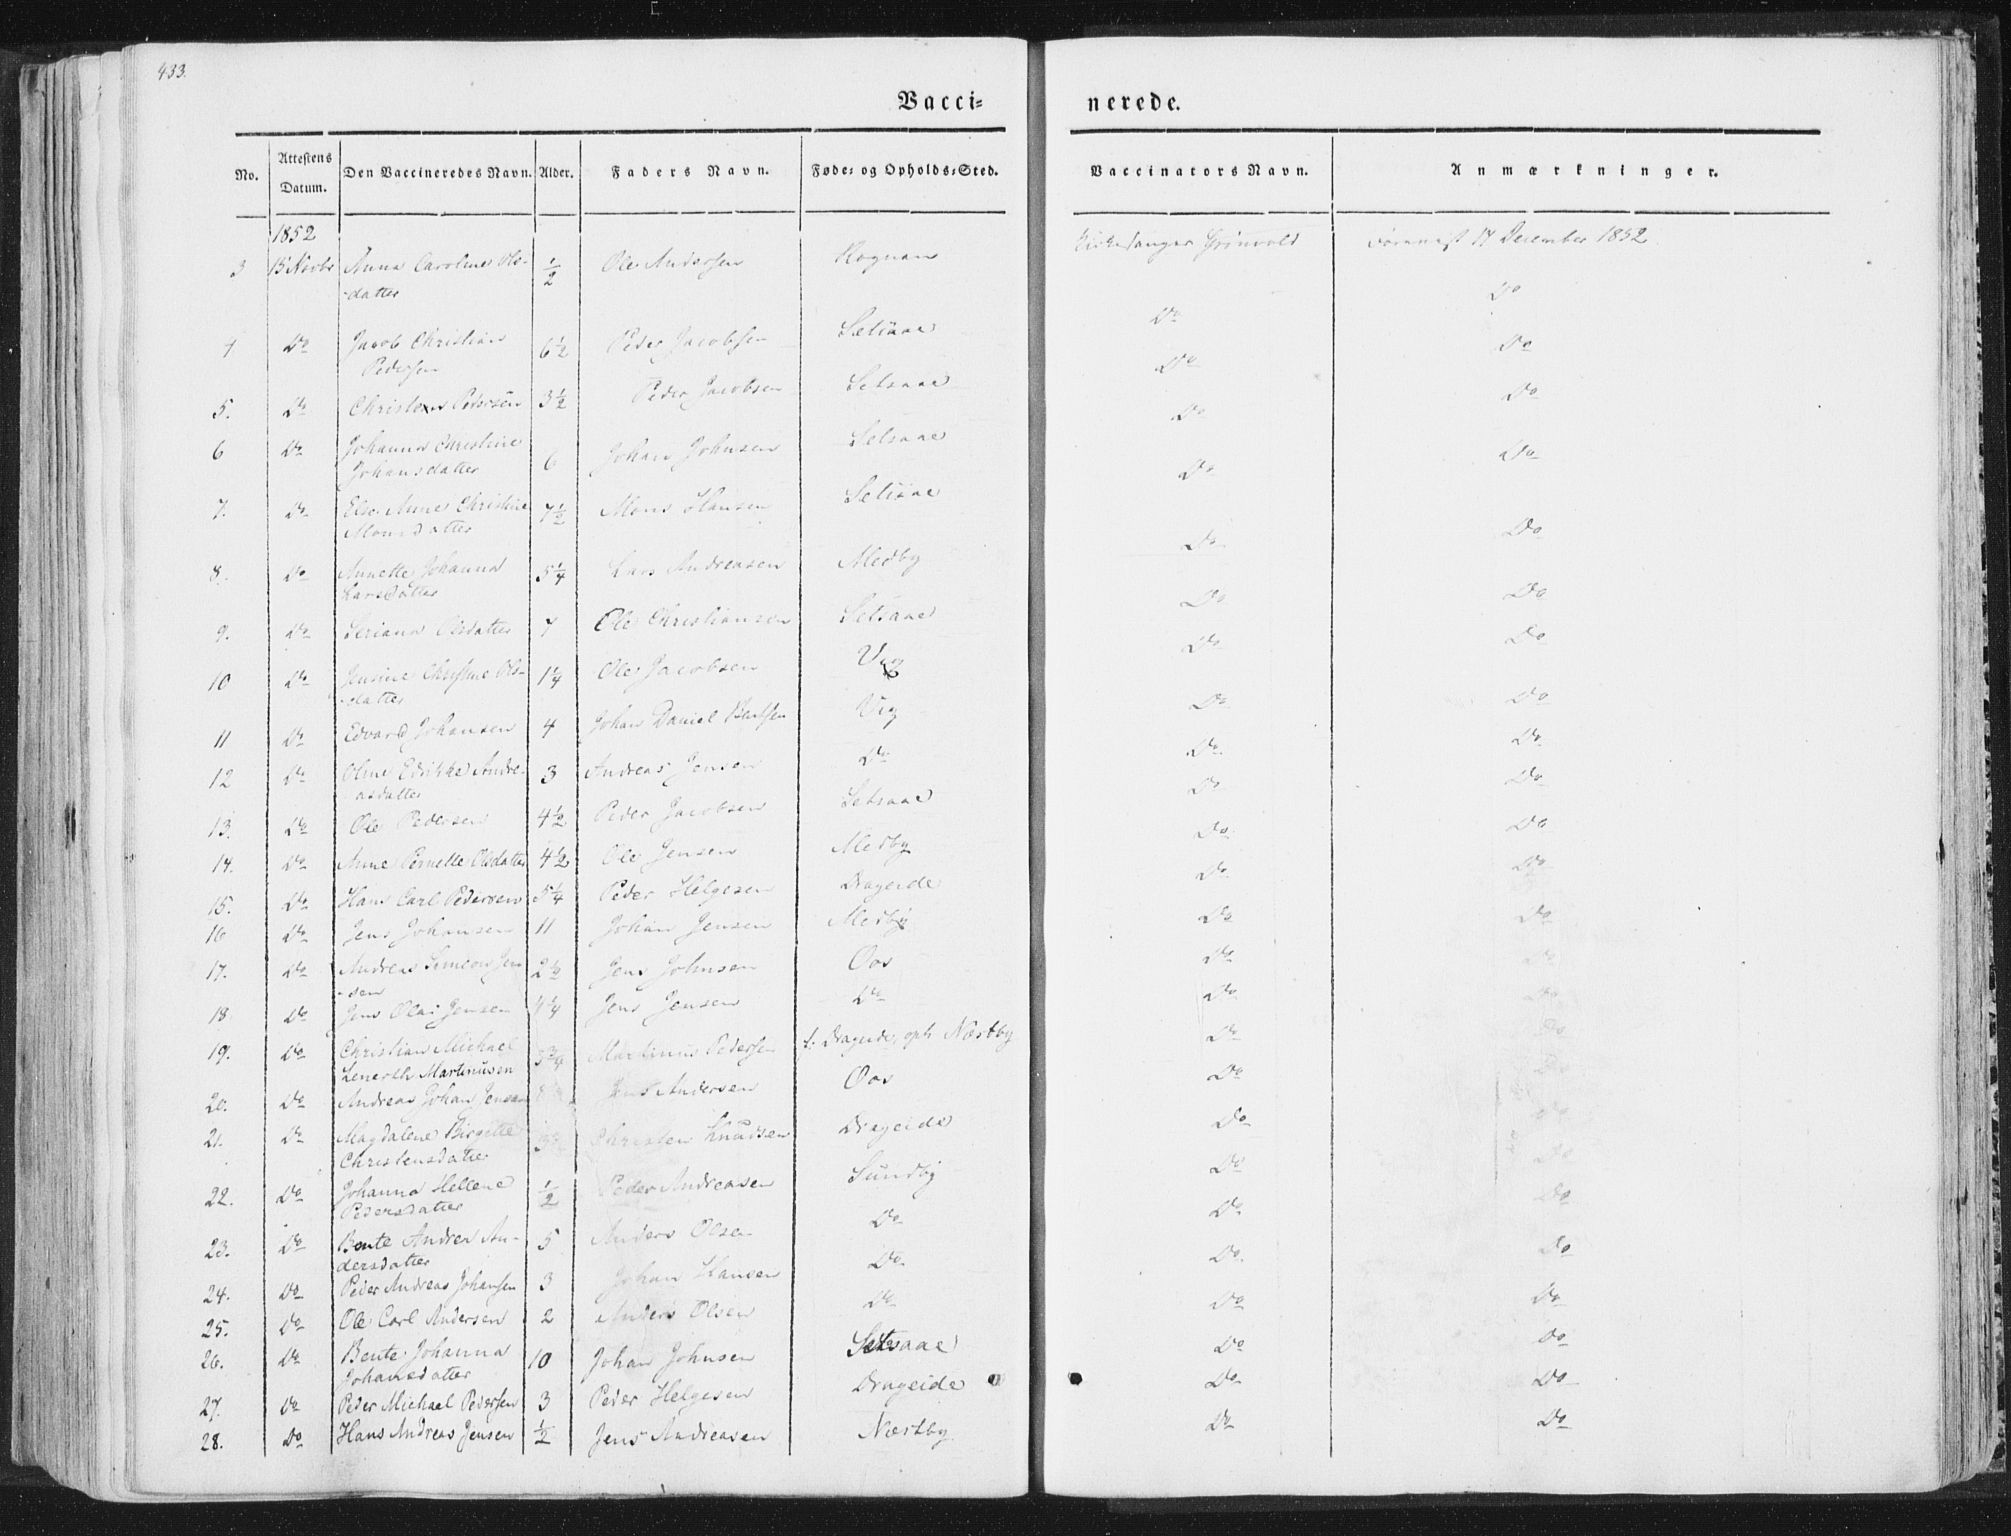 433.
Vacci= nerede.
No. Attestens Datum. Den Vaccineredes Navn. Alder. Faders Navn. Føde= og Opholds=Sted. Vaccinators Navn. Anmærkninger.
1852
3 15 Novbr Anna Caroline Ols- ½ Ole Andersen Rognan Kirkesanger Grønvold Forevist 14 December 1852
-datter
4 Do Jacob Christian 6½ Peder Jacobsen Setsaae Do Do
Pedersen
5. Do Christen Pedersen 3½ Peder Jacobsen Setsaae Do Do
6 Do Johanna Christine 6 Johan Johnsen Setsaae Do Do
Johansdatter
7. Do Else Anne Christine 7½ Mons Hansen Setsaae Do Do
Monsdatter
8. Do Annette Johanna 5¼ Lars Andreasen Medby Do Do
Larsdatter
9. Do Seriana Olsdatter 7 Ole Christiansen Setsaae Do Do
10 Do Jensine Christine Ols- 1¼ Ole Jacobsen Vig Do Do
-datter
11 Do Edvard Johansen 4 Johan Daniel Bentsen Vig Do Do
12 Do Oline Edikke Andre- 3 Andreas Jensen Do Do Do
asdatter
13. Do Ole Pedersen 4½ Peder Jacobsen Setsaae Do Do
14. Do Anne Pernelle Olsdatter 4½ Ole Jensen Medby Do Do
15. Do Hans Carl Pedersen 5¼ Peder Helgesen Drageide Do Do
16 Do Jens Johansen 11 Johan Jensen Medby Do Do
17. Do Andreas Simeon Jen 2½ Jens Johnsen Oos Do Do
-sen
18 Do Jens Olai Jensen 4¼ Jens Jensen Do Do Do
19. Do Christian Michael 3¾ Martinus Pedersen f: Drageide, oph Næstby Do Do
Lenerth Martinusen
20. Do Andreas Johan Jensen 8 Jens Andersen Oos Do Do
21. Do Magdalene Birgitte 3 Christen Knudsen Drageide Do Do
Christensdatter
22. Do Johanna Hellene ½ Peder Andreasen Sundby Do Do
Pedersdatter
23. Do Bente Andrea An- 5 Anders Olsen Do Do Do
dersdatter
24. Do Peder Andreas Johansen 3 Johan Hansen Do Do Do
25. Do Ole Carl Andersen 2 Anders Olsen Do Do Do
26. Do Bente Johanna 10 Johan Johnsen Setsaae Do Do
Johansdatter
27. Do Peder Michael Pedersen 3 Peder Helgesen Drageide Do Do
28. Do Hans Andreas Jensen ½ Jens Andreasen Næstby Do Do